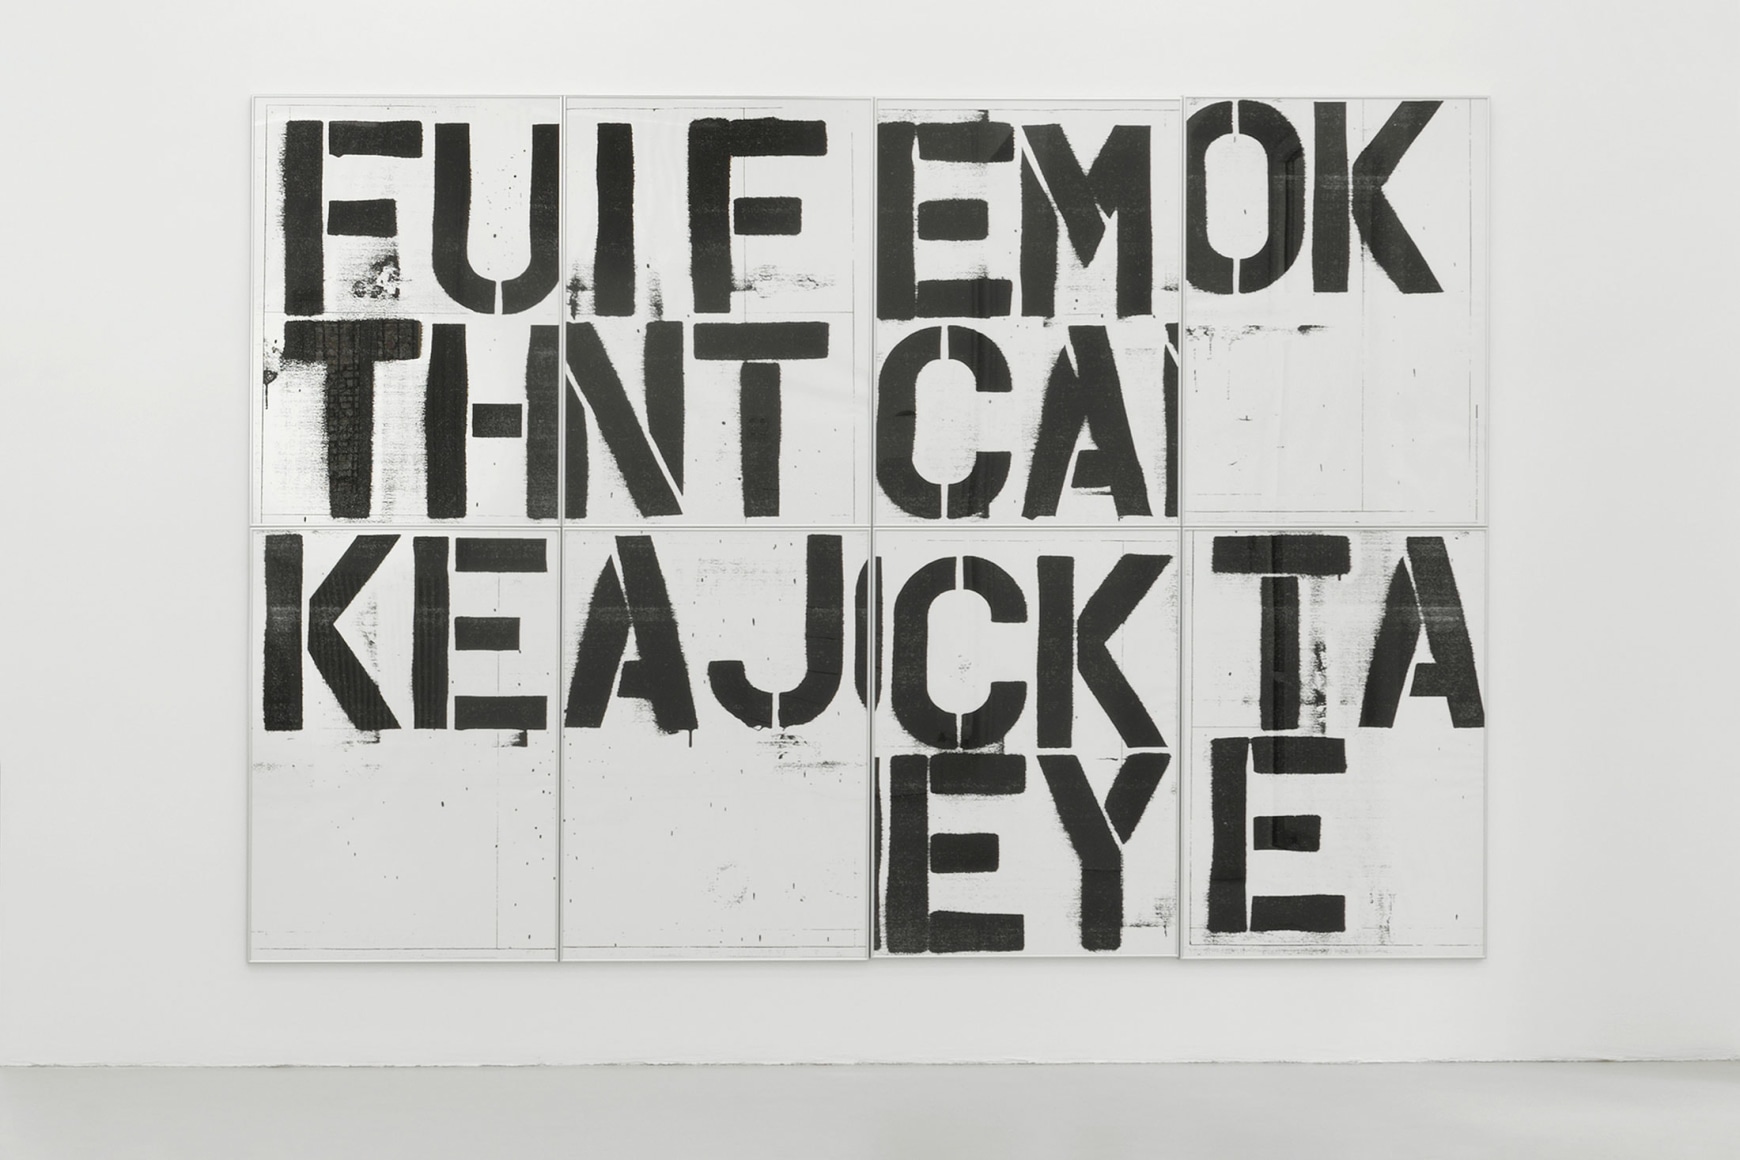 FUIF EMOK
THNT CAN
KEAJ CK TA
EYE